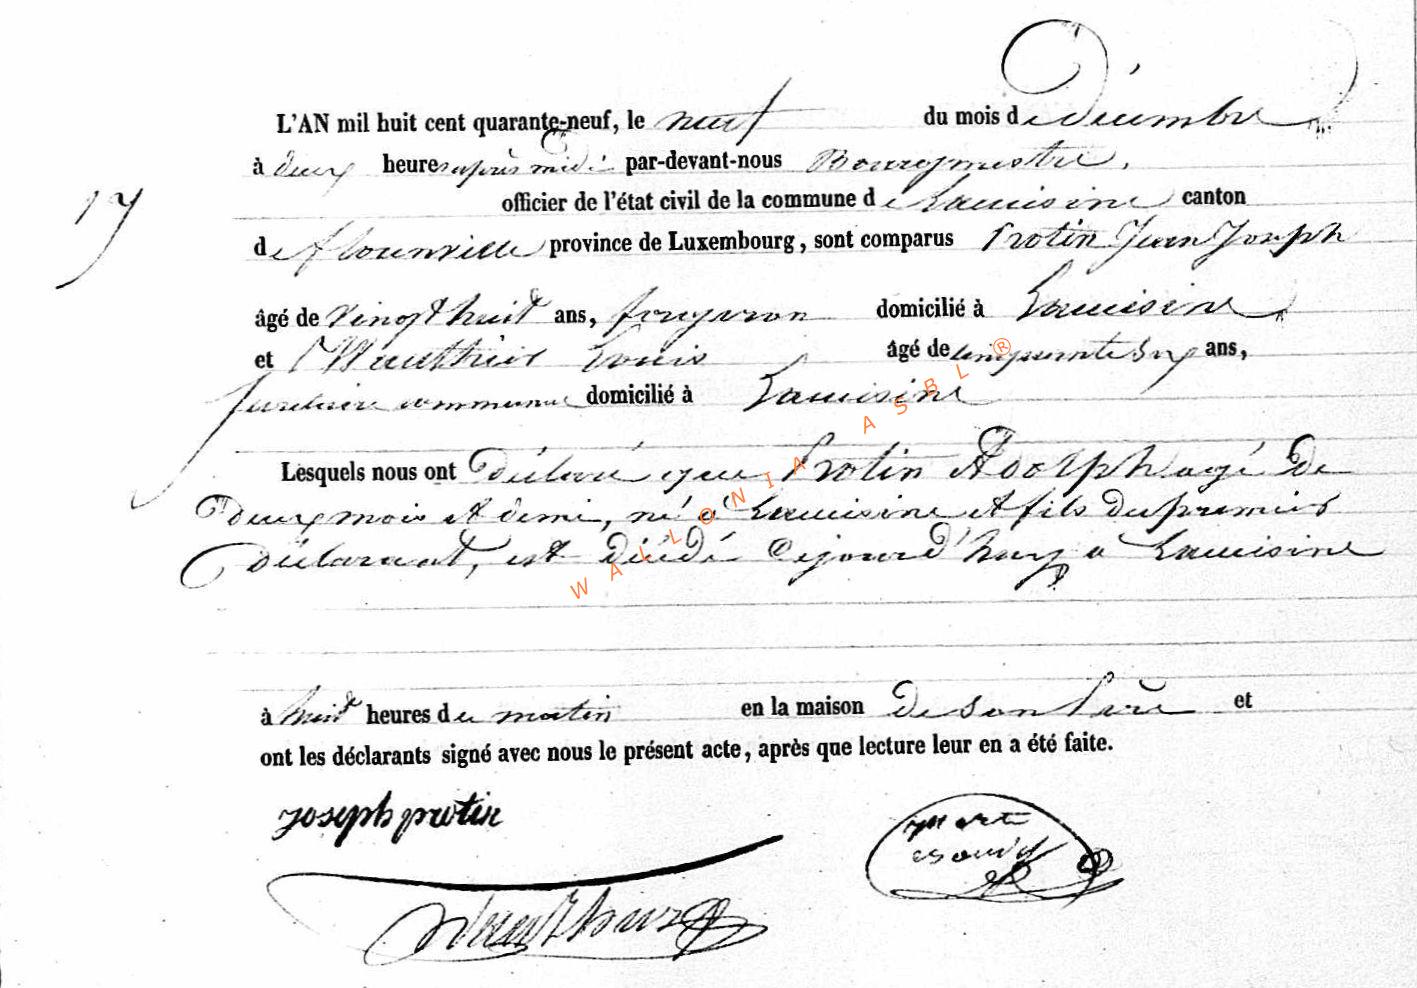 L'AN mil huit cent quarante-neuf, le neuf du mois de décembre
à deux heures après midi par-devant-nous Bourgmestre,
officier de l'état civil de la commune de Lacuisine canton
17
de florenville province de Luxembourg, sont comparus Protin Jean Joseph
âgé de vingt huit ans, forgeron domicilié à Lacuisine,
et Wauthier Louis âgé de cinquante six ans,
domicilié à Lacuisine
Lesquels nous ont déclaré que Protin Adolph agé de
deux mois et demi, né à Lacuisine et fils du premier
déclarant, est décédé cejourd'huy a Lacuisine
à huit heures du matin en la maison de son Père et
ont les déclarants signé avec nous le présent acte, après que lecture leur en a été faite.
Joseph protin
WALLONIA ASBL ®